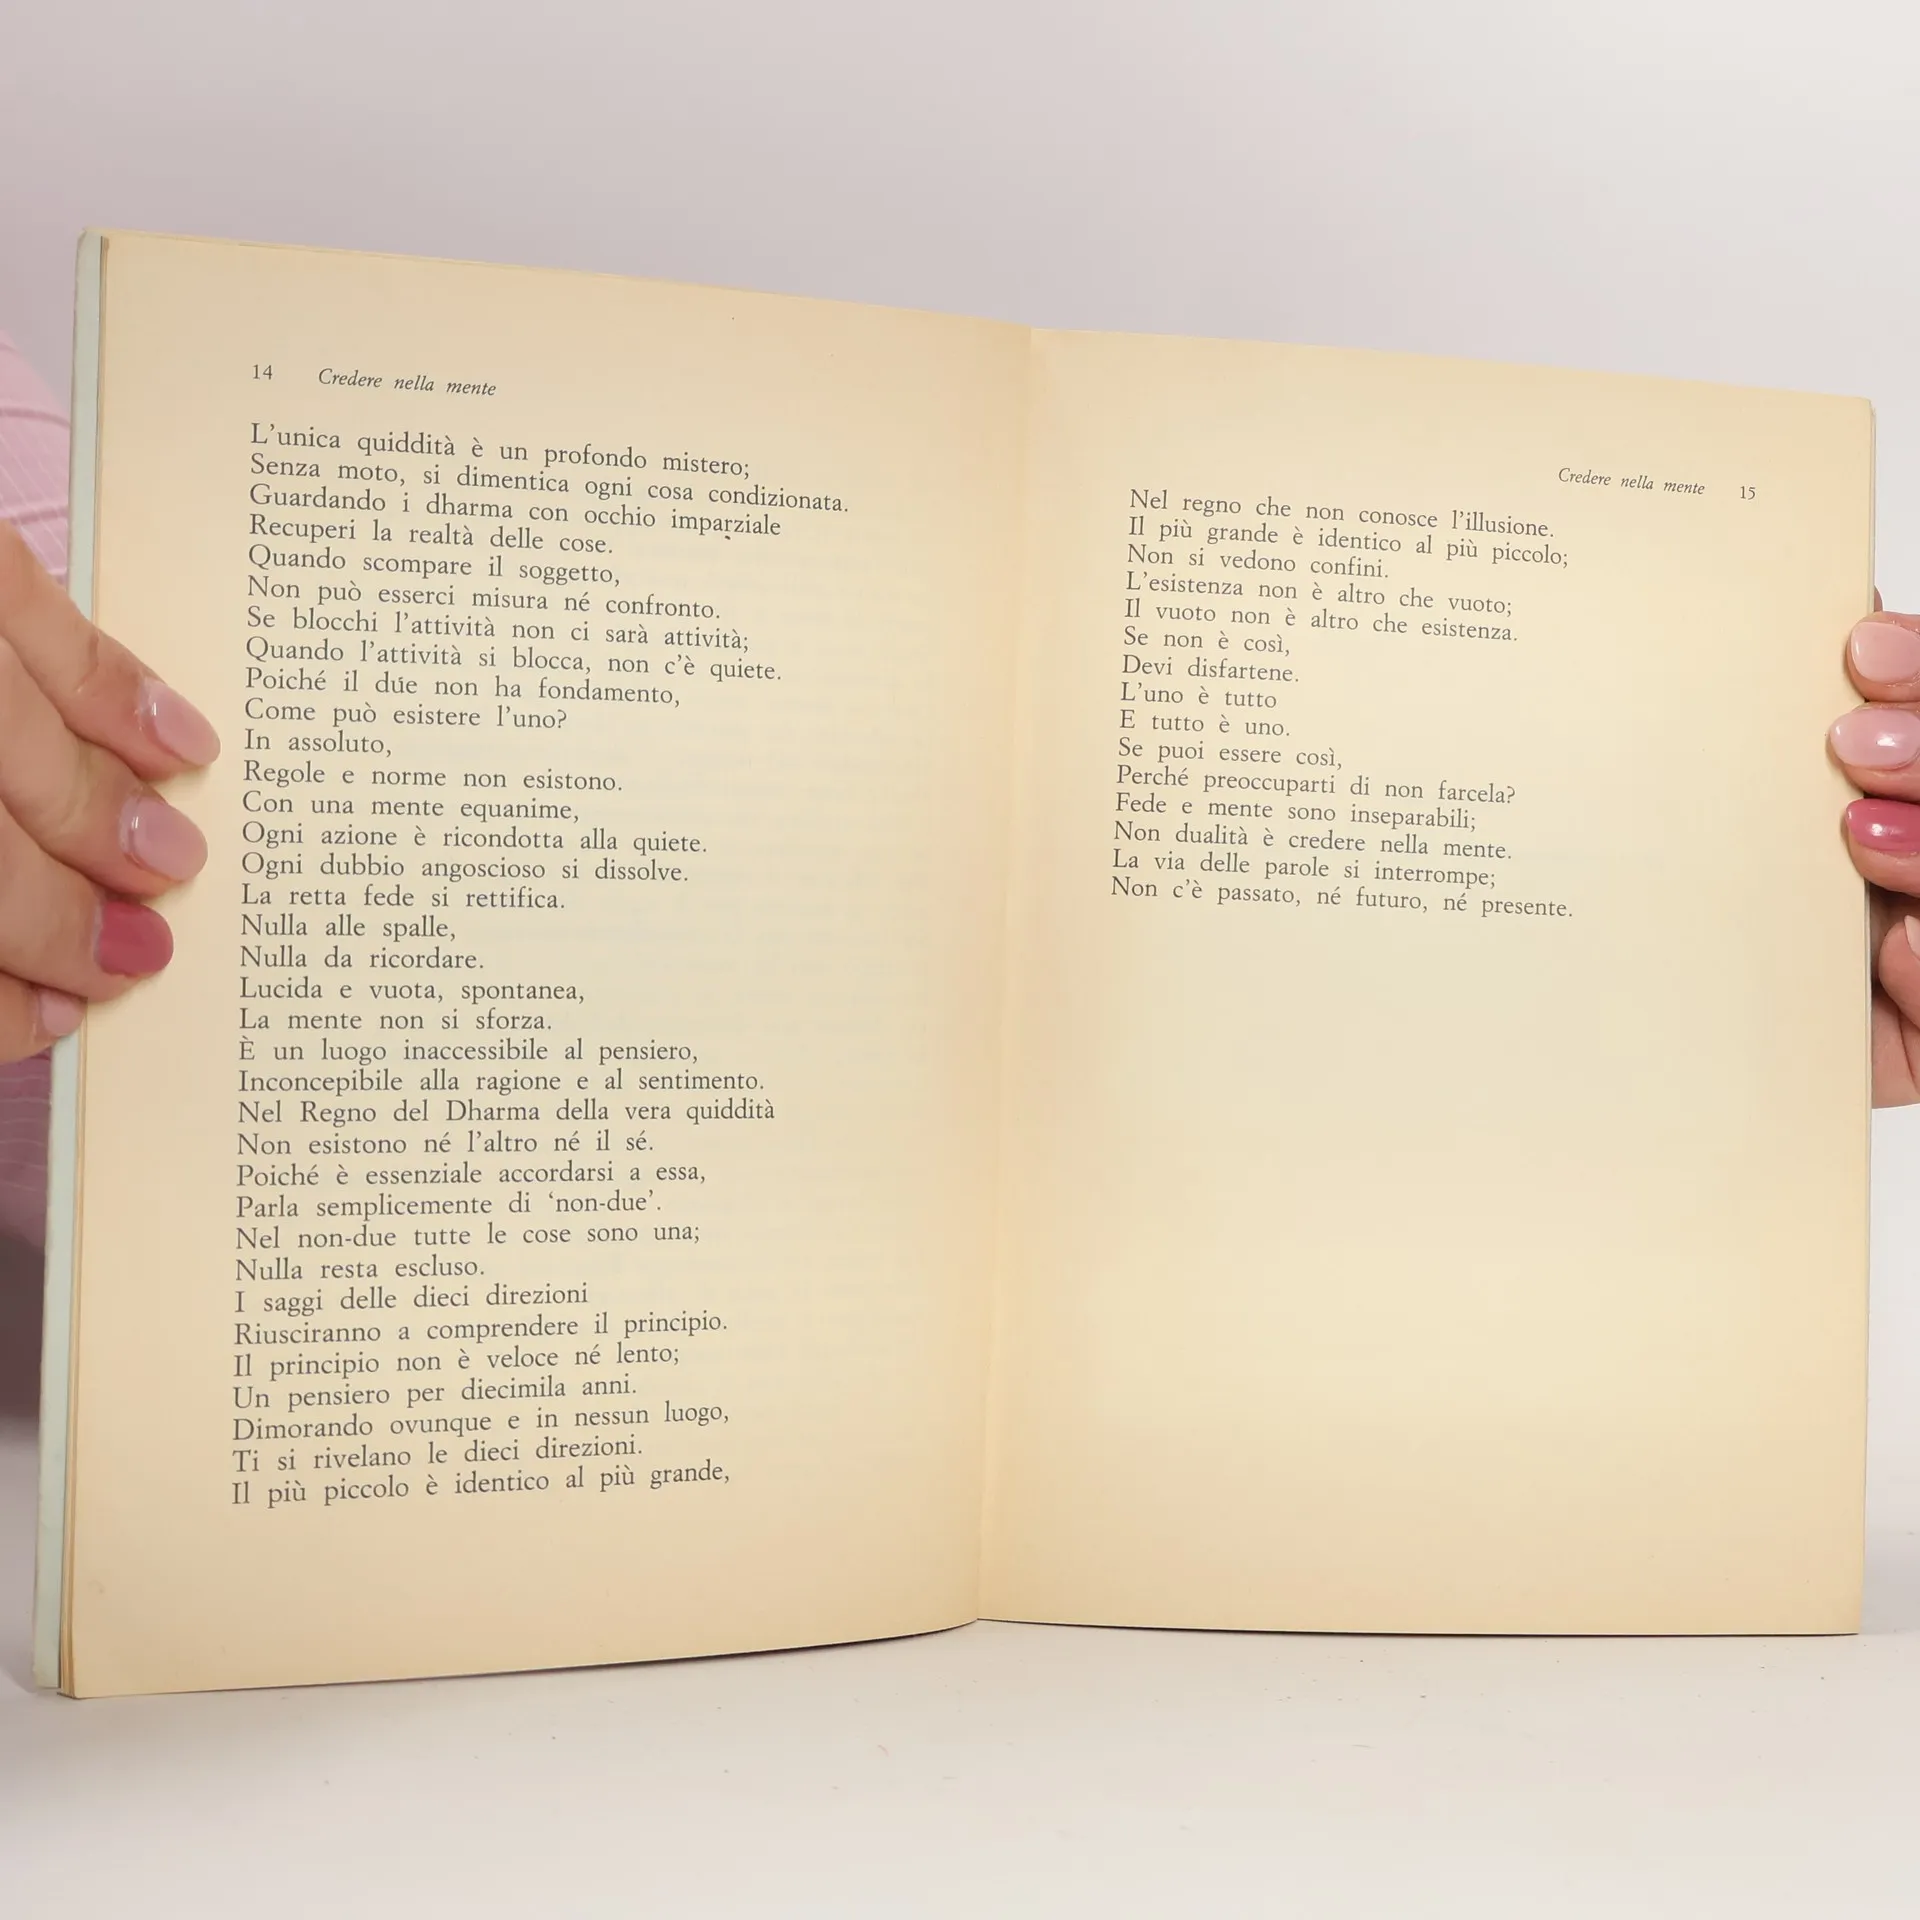 14 Credere nella mente
L'unica quiddità è un profondo mistero;
Senza moto, si dimentica ogni cosa condizionata.
Guardando i dharma con occhio imparziale
Recuperi la realtà delle cose.
Quando scompare il soggetto,
Non può esserci misura né confronto.
Se blocchi l'attività non ci sarà attività;
Quando l'attività si blocca, non c'è quiete.
Poiché il due non ha fondamento,
Come può esistere l'uno?
In assoluto,
Regole e norme non esistono.
Con una mente equanime,
Ogni azione è ricondotta alla quiete.
Ogni dubbio angoscioso si dissolve.
La retta fede si rettifica.
Nulla alle spalle,
Nulla da ricordare.
Lucida e vuota, spontanea,
La mente non si sforza.
È un luogo inaccessibile al pensiero,
Inconcepibile alla ragione e al sentimento.
Nel Regno del Dharma della vera quiddità
Non esistono né l'altro né il sé.
Poiché è essenziale accordarsi a essa,
Parla semplicemente di 'non-due'.
Nel non-due tutte le cose sono una;
Nulla resta escluso.
I saggi delle dieci direzioni
Riusciranno a comprendere il principio.
Il principio non è veloce né lento;
Un pensiero per diecimila anni.
Dimorando ovunque e in nessun luogo,
Ti si rivelano le dieci direzioni.
Il più piccolo è identico al più grande,
Credere nella mente 15
Nel regno che non conosce l'illusione.
Il più grande è identico al più piccolo;
Non si vedono confini.
L'esistenza non è altro che vuoto;
Il vuoto non è altro che esistenza.
Se non è così,
Devi disfartene.
L'uno è tutto
E tutto è uno.
Se puoi essere così,
Perché preoccuparti di non farcela?
Fede e mente sono inseparabili;
Non dualità è credere nella mente.
La via delle parole si interrompe;
Non c'è passato, né futuro, né presente.